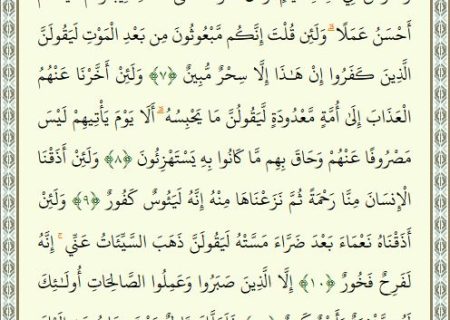 أَحْسَنُ عَمَلًا ۗ وَلَئِن قُلْتَ إِنَّكُم مَّبْعُوثُونَ مِن بَعْدِ الْمَوْتِ لَيَقُولَنَّ
الَّذِينَ كَفَرُوا إِنْ هَٰذَا إِلَّا سِحْرٌ مُّبِينٌ ﴿٧﴾ وَلَئِنْ أَخَّرْنَا عَنْهُمُ
الْعَذَابَ إِلَىٰ أُمَّةٍ مَّعْدُودَةٍ لَّيَقُولُنَّ مَا يَحْبِسُهُ ۗ أَلَا يَوْمَ يَأْتِيهِمْ لَيْسَ
مَصْرُوفًا عَنْهُمْ وَحَاقَ بِهِم مَّا كَانُوا بِهِ يَسْتَهْزِئُونَ ﴿٨﴾ وَلَئِنْ أَذَقْنَا
الْإِنسَانَ مِنَّا رَحْمَةً ثُمَّ نَزَعْنَاهَا مِنْهُ إِنَّهُ لَيَئُوسٌ كَفُورٌ ﴿٩﴾ وَلَئِنْ
أَذَقْنَاهُ نَعْمَاءَ بَعْدَ ضَرَّاءَ مَسَّتْهُ لَيَقُولَنَّ ذَهَبَ السَّيِّئَاتُ عَنِّي ۚ إِنَّهُ
لَفَرِحٌ فَخُورٌ ﴿١٠﴾ إِلَّا الَّذِينَ صَبَرُوا وَعَمِلُوا الصَّالِحَاتِ أُولَـٰئِكَ